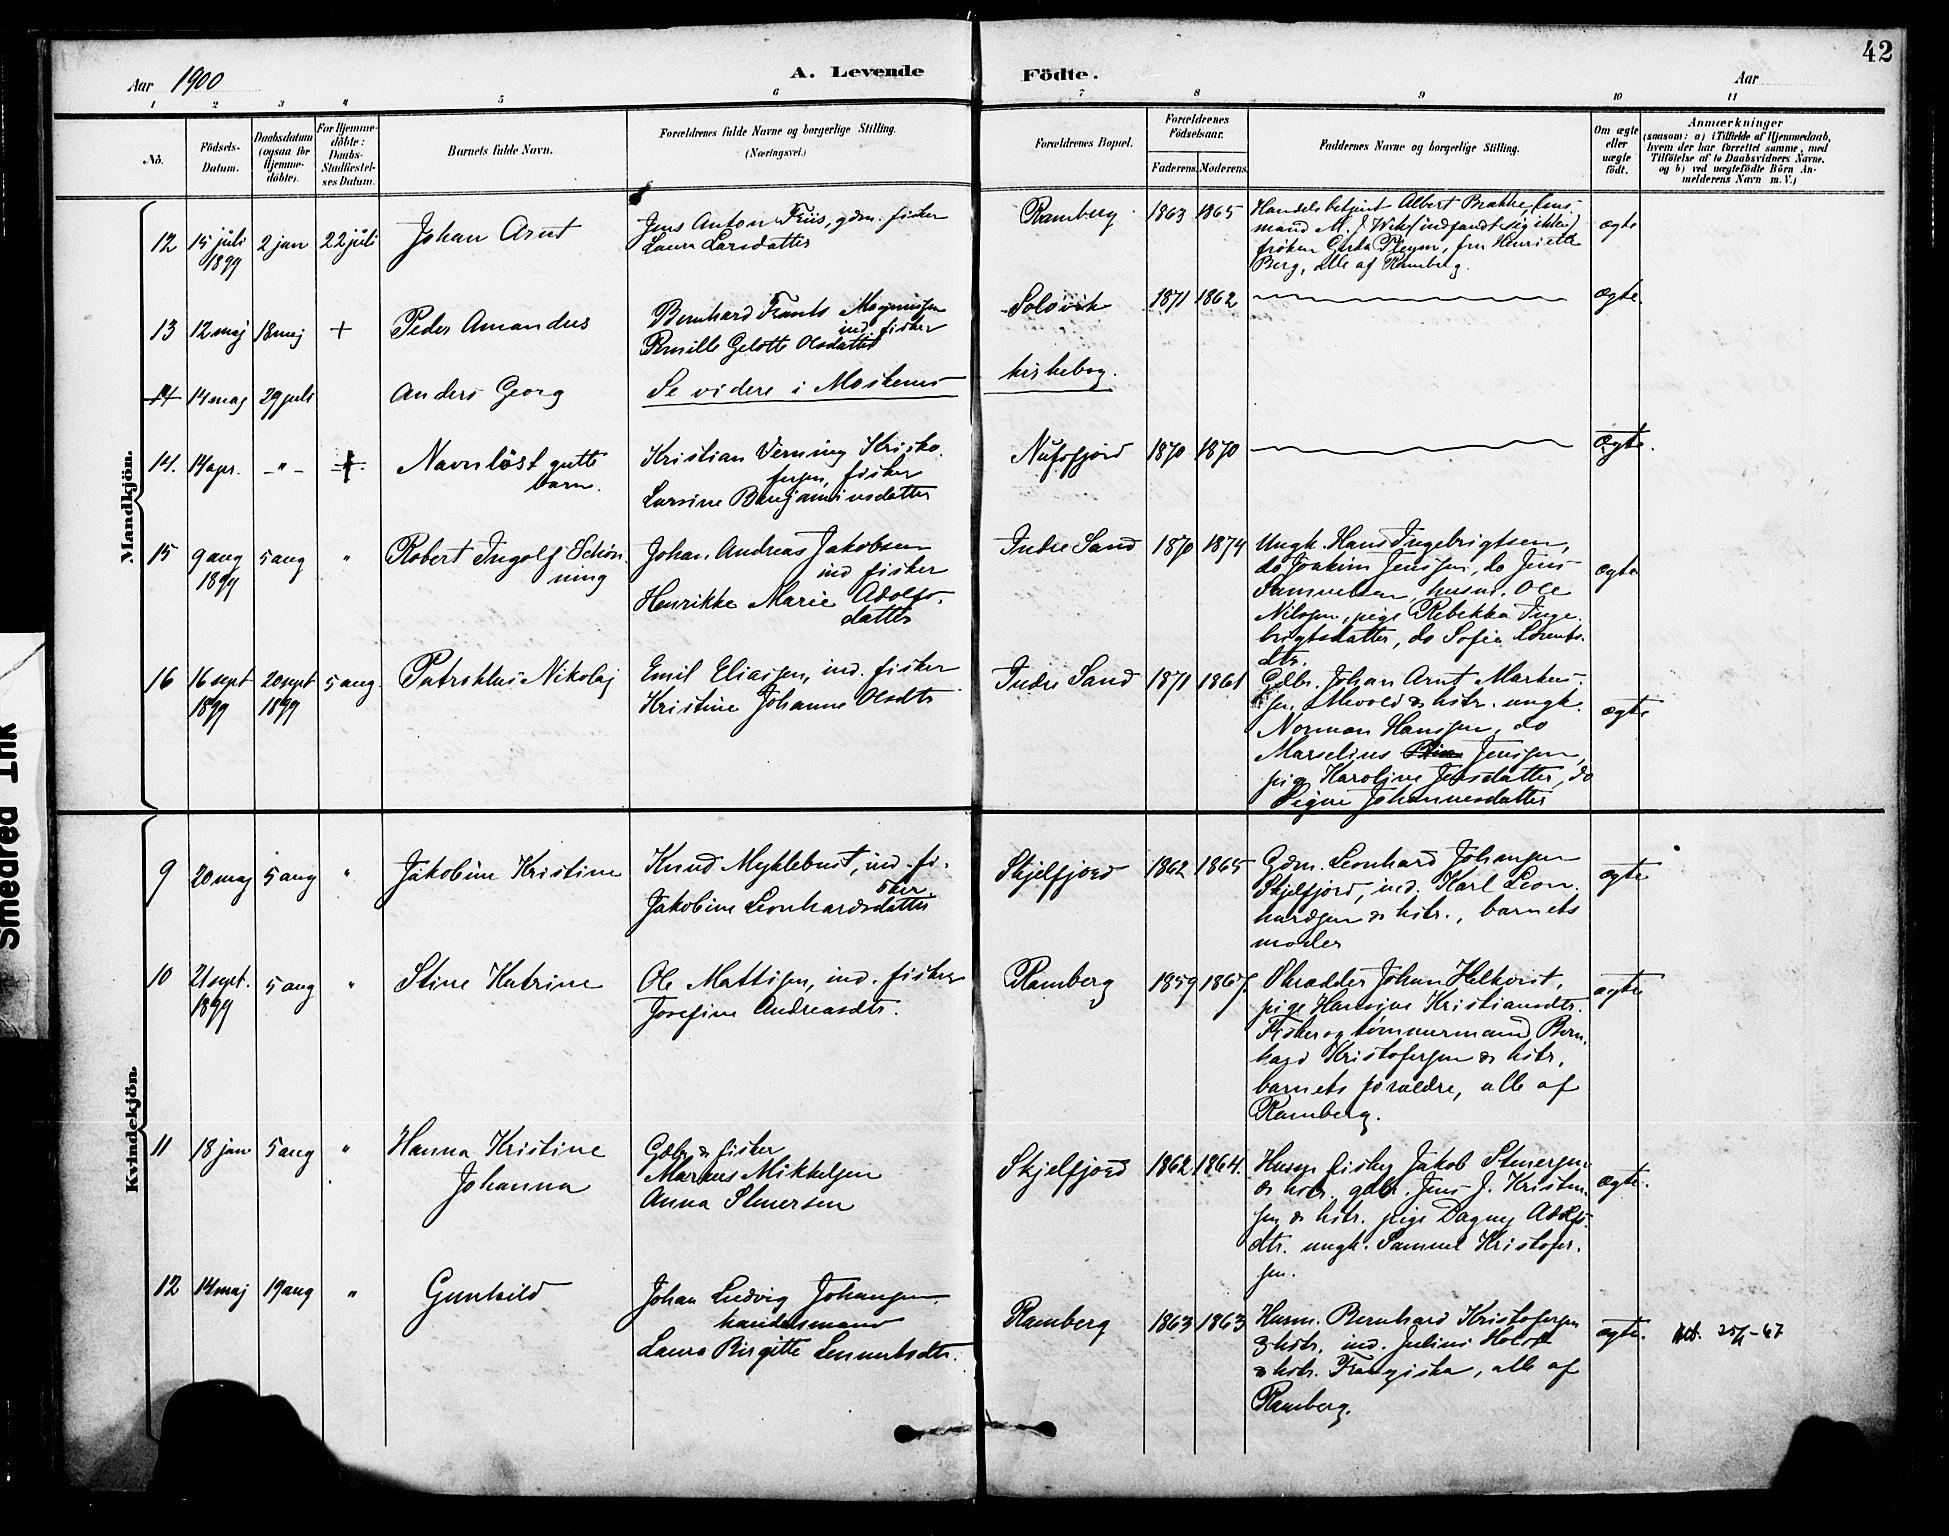 42
Aar 1900
A. Levende Födte.
Aar
1 2 3 4 5 6 7 8 9 10 11
No.
Födsels-
Datum.
Daabsdatum
(ogsaa for
Hjemme-
döbte).
For Hjemme-
döbte:
Daabs-
Stadfæstel-
ses Datum.
Barnets fulde Navn.
Forældrenes fulde Navne og borgerlige Stilling.
(Næringsvei.)
Forældrenes Bopæl.
Forældrenes
Födselsaar.
Faderens. Moderens.
Faddernes Navne og borgerlige Stilling.
Om ægte
eller
uægte
födt.
Anmærkninger
(saasom: a) i Tilfælde af Hjemmedaab,
hvem der har forrettet samme, med
Tilföielse af to Daabsvidners Navne.
og b) ved uægtefödte Börn An-
melderens Navn m. V.)
Mandkjön.
12 15 juli 1899 2 jan 22 juli Johan Arnt
Jens Anton Friis, gdm. fisker
Laura Larsdatter
Ramberg 1863 1865
Handelsbetjent Albert Brathe, lens-
mand M. J. Wik (indfandt sig ikke)
frøken Gerda Pleym, fru Henriette
Berg, alle af Ramberg.
ægte
13 12 maj 18 maj + Peder Amandus
Bernhard Frants Magnusen
ind fisker
Pernille Gelotte Olsdatter
Soløvik 1871 1862
ægte.
14 14 maj 29 juli Anders Georg
Se videre i Moskenes kirkebog.
14. 14 apr. -"- + Navnløst gutte
barn.
Kristian Verning Kristo-
fersen, fisker
Larsine Benjaminsdatter
Nufsfjord 1870 1870
ægte.
15 9 aug 1899 5 aug " Robert Ingolf Schøn
ning
Johan Andreas Jakobsen
ind fisker
Henrikke Marie Adolfs-
datter
Indre Sand 1870 1874
Ungk. Hans Ingebrigtsen,
do Joakim Jensen, do Jens
Samuelsen, husm. Ole
Nilssen, pige Rebekka Inge-
brigtsdatter, do Sofie Lorents-
dtr.
ægte
16 16 sept 1899 20 sept 1899 5 aug. Patroklus Nikolaj
Emil Eliassen, ind. fisker
Kristine Johanne Olsdtr
Indre Sand 1871 1861
Gdbr. Johan Arnt Markus-
sen, Mevold & hstr. ungk.
Norman Hanssen, do
Marselius Jenssen,
pige Karoline Jensdatter, do
Signe Johannesdatter
ægte
Kvindekjön.
9 20 maj 5 aug " Jakobine Kristine
Knud Myklebust, ind. fi-
sker.
Jakobine Leonhardsdatter
Skjelfjord 1862 1865
Gdm. Leonhard Johansen
Skjelfjord, ind. Karl Leon-
hardsen & hstr., barnets
moder
ægte
10 21 sept. 1899 5 aug " Stine Katrine
Ole Mattisen, ind. fisker
Josefine Andreasdtr.
Ramberg 1859 1867.
Skrædder Johan Helkvist,
pige Hansine Kristiansdtr.
Fisker og tømmermand Bern-
hard Kristofersen & hstr,
barnets forældre, alle af
Ramberg.
ægte
11 18 jan 5 aug " Hanna Kristine
Johanna
Gdbr & fisker
Markus Mikkelsen
Anna Stenersen
Skjelfjord 1862. 1864.
Husm fisker Jakob Stenersen
& hstr. gdbr. Jens J. Kristen-
sen & hstr. pige Dagny Adolfs-
dtr. ungk. Samuel Kristofer-
sen.
ægte.
12 14 maj 19 aug " Gunhild
Johan Ludvig Johansen,
handelsmand
Laura Birgitte Lennertsdtr.
Ramberg 1863 1863
Husm. Bernhard Kristofersen
& hstr. ind. Julius Holst
& hstr. Franziska, alle af
Ramberg.
ægte.
Smedred Ink